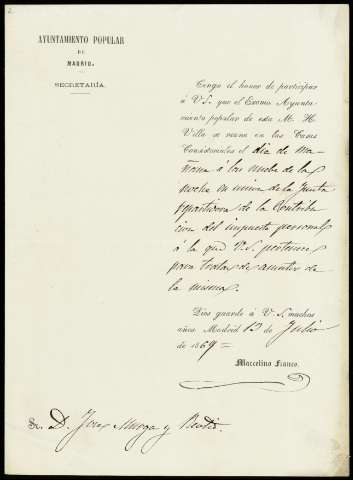 AYUNTAMIENTO POPULAR
DE
MADRID.
SECRETARÍA.
Tengo el honor de participar
á V. S. que el Excmo. Ayunta-
miento popular de esta M. H.
Villa se reune en las Casas
Consistoriales el dia de ma-
ñana á las nueve de la
noche en union de la Junta
repartidora de la Contribu
cion del impuesto personal
á la que V. S. pertenece
para tratar de asuntos de
la misma.
Dios guarde á V. S. muchos
años. Madrid 13 de Julio
de 1869=
Marcelino Franco.
Sr. D. José Murga y